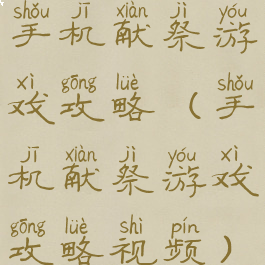 shǒu jī xiàn jì yóu
手机献祭游
xì gōng lüè shǒu
戏攻略（手
jī xiàn jì yóu xì
机献祭游戏
gōng lüè shì pín
攻略视频）